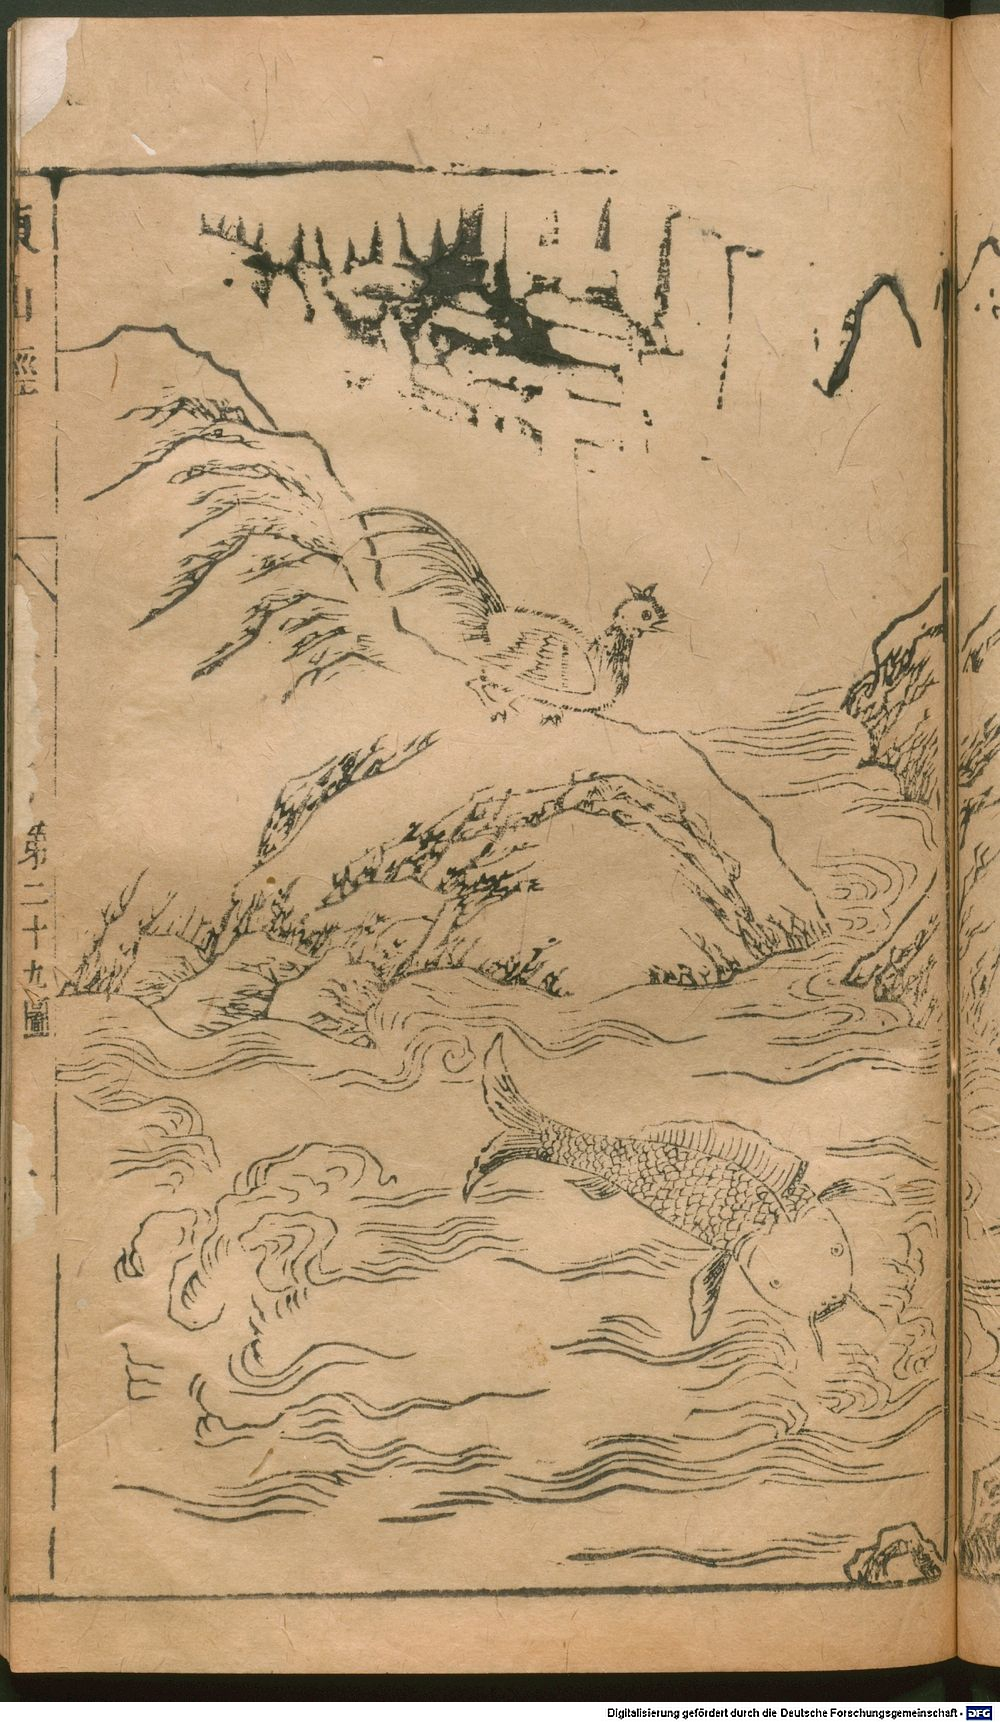 東山經
第二十九圖
Digitalisierung gefördert durch die Deutsche Forschungsgemeinschaft - DFG